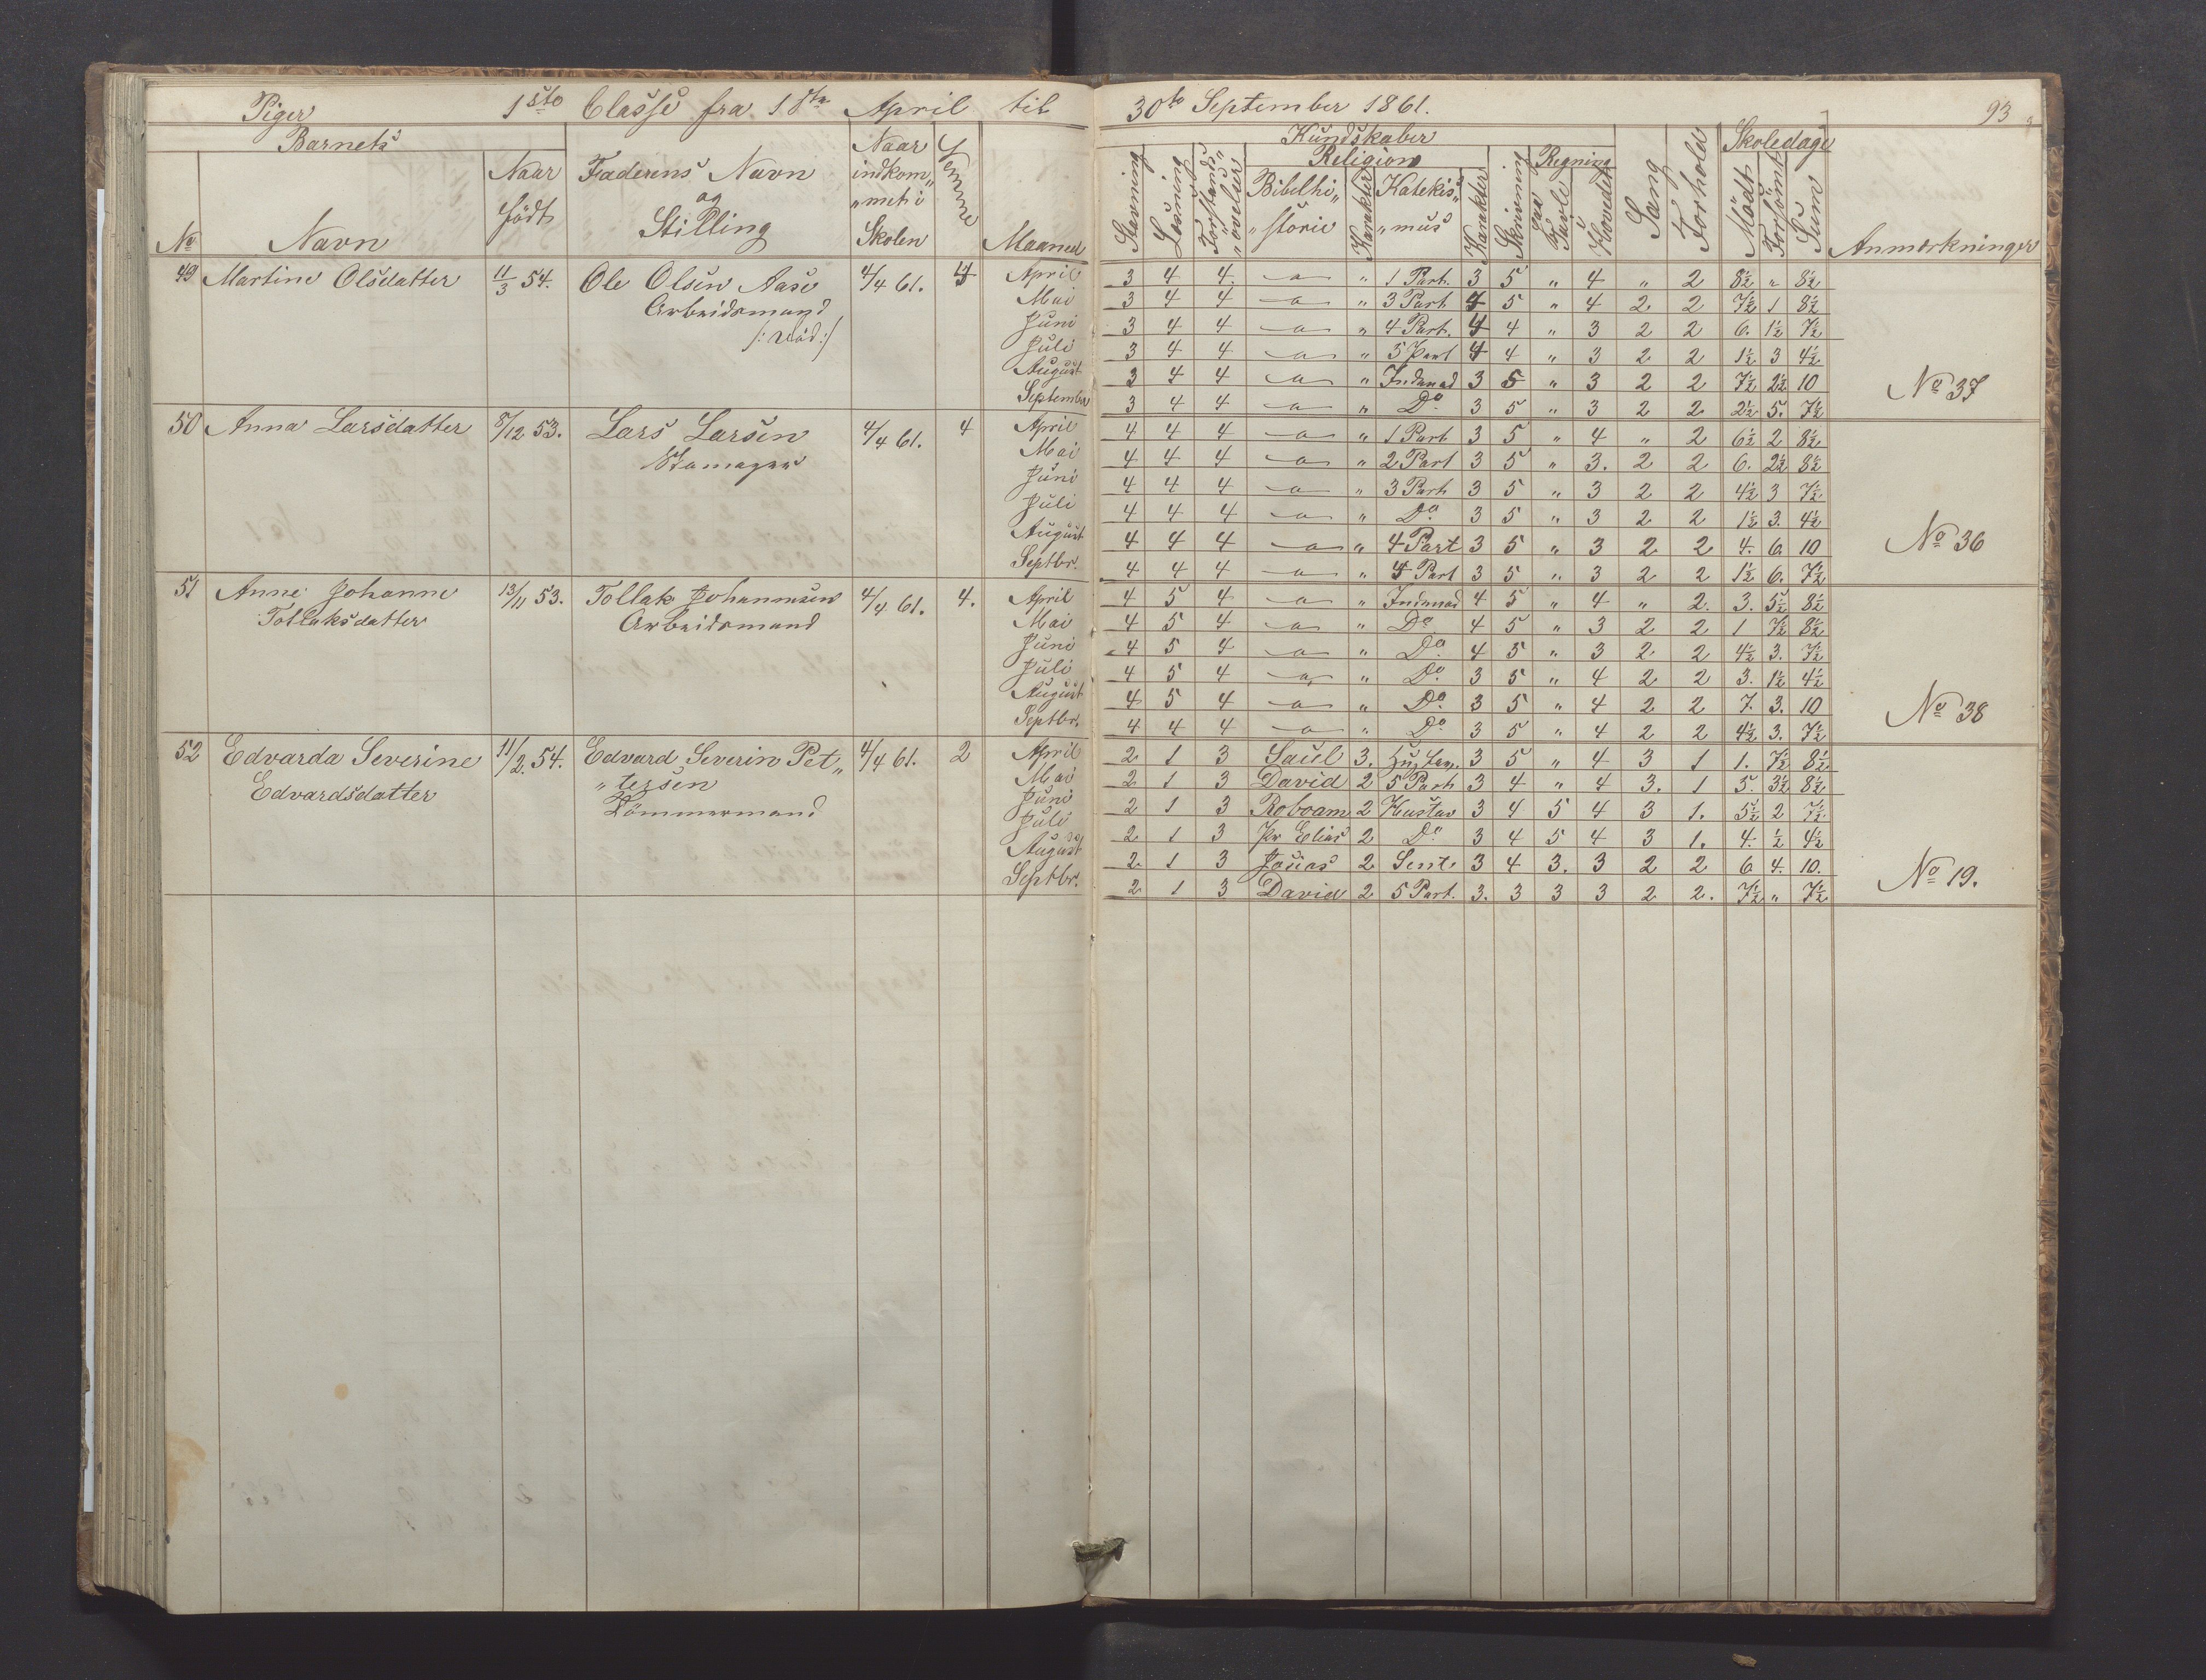 Piger 1ste Classe fra 1ste April til 30te September 1861. 93
Barnets
No
Navn
Naar født
Faderens Navn og Stilling
Naar indkom„
„met i
Skolen
Evne
Maaned
Kundskaber
Stavning
Læsning
Forstands„
„øvelser
Religion
Bibelhi„
„storie
Karakter
Katekis„
„mus
Karakter
Skrivning
Regning
Paa Tavle
Hovedet
Sang
Forhold
Skoledage
Mødt
Forsømt
Sum
Anmærkninger
49 Martine Olsdatter 11/3 54. Ole Olsen Aase 4/4 61.
Arbeidsmand
/: død :/
April 3 4 4 a " 1 Part. 3 5 " 4 " 2 8½ " 8½
Mai 3 4 4 a " 3 Part 4 5 " 4 2 2 7½ 1 8½
Juni 3 4 4 a " 4 Part. 4 4 " 3 2 2 6. 1½ 7½
Juli 3 4 4 a " 5 Part 4 4 " 3 2 2 1½ 3 4½
August 3 4 4 a " Indenad 3 5 " 3 2 2 7½ 2½ 10
September 3 4 4 a " Do 3 5 " 3 2 2 2½ 5. 7½
No 37
50 Anna Larsdatter 8/12 53. Lars Larsen 4/4 61. 4
April 4 4 4 a " 1 Part 3 5 " 4 " 2 6½ 2 8½
Mai 4 4 4 a " 2 Part 3 5 " 3. 2 2 6. 2½ 8½
Juni 4 4 4 a " 3 Part 3 5 " 3 2 2 4½ 3 7½
Juli 4 4 4 a " Do 3 5 " 3 2 2 1½ 3. 4½
August 4 4 4 a " 4 Part 3 5 " 3 2 2 4. 6. 10
Septbr. 4 4 4 a " 4 Part 3 5 " 3 2 2 1½ 6. 7½
No 36
51 Anne Johanne 13/11 53. Tollak Johannesen 4/4 61. 4.
Tollaksdatter Arbeidsmand
April 4 5 4 a " Indenad 4 5 " 4 " 2. 3. 5½ 8½
Mai 4 5 4 a " Do 4 5 " 3 2 2 1 7½ 8½
Juni 4 5 4 a " Do 4 5 " 3 2 2 4½ 3. 7½
Juli 4 5 4 a " Do 3 5 " 4 2 2 3. 1½ 4½
August 4 5 4 a " Do. 3 5 " 4 2 2 7. 3. 10
Septbr. 4 4 4 a " Do 3 5 " 4 2 2 4½ 3. 7½
No 38
52 Edvarda Severine 11/2. 54. Edvard Severin Pet„ 4/4 61. 2
Edvardsdatter „tersen
Tömmermand
April 2 1 3 Saul 3. Hustav. 3 5 " 4 3 1 1. 7½ 8½
Mai 2 1 3 David 2 5 Part 3 4 " 4 3. 1 5. 3½ 8½
Juni 2 1 3 Roboam 2 Hustav 3 4 5 4 3 1. 5½ 2 7½
Juli 2 1 3 Pr Elias 2 Do 3 4 5 4 3 1. 4. ½ 4½
August 2 1 3 Josias 2 Sent. 3 4 3. 3 2 2 6 4. 10.
Septbr. 2 1 3 David 2 5 Part. 3. 3 3 3 2 2. 7½ " 7½
No 19.